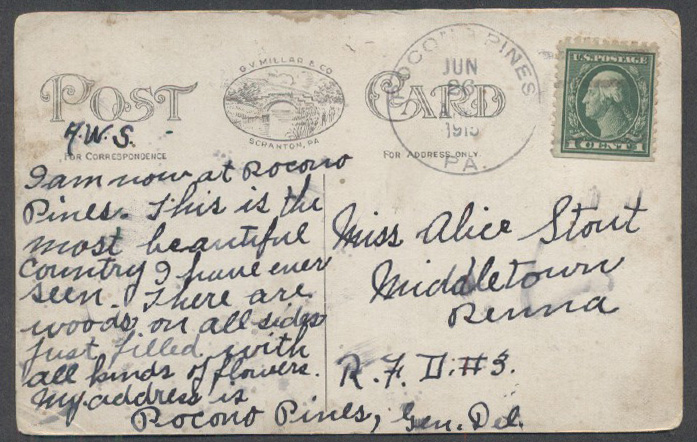 POST CARD
G.V. MILLAR & CO
SCRANTON, PA
POCONO PINES
JUN
26
PA.
U.S. POSTAGE
1 CENT 1
FOR CORRESPONDENCE
FOR ADDRESS ONLY
I am now at Pocono
Pines. This is the
most beautiful
country I have ever
seen. There are
woods on all sides
just filled with
all kinds of flowers.
My address is
Pocono Pines, Gen. Del.
Miss Alice Stout
Middletown
Penna
R. F. D. #3.